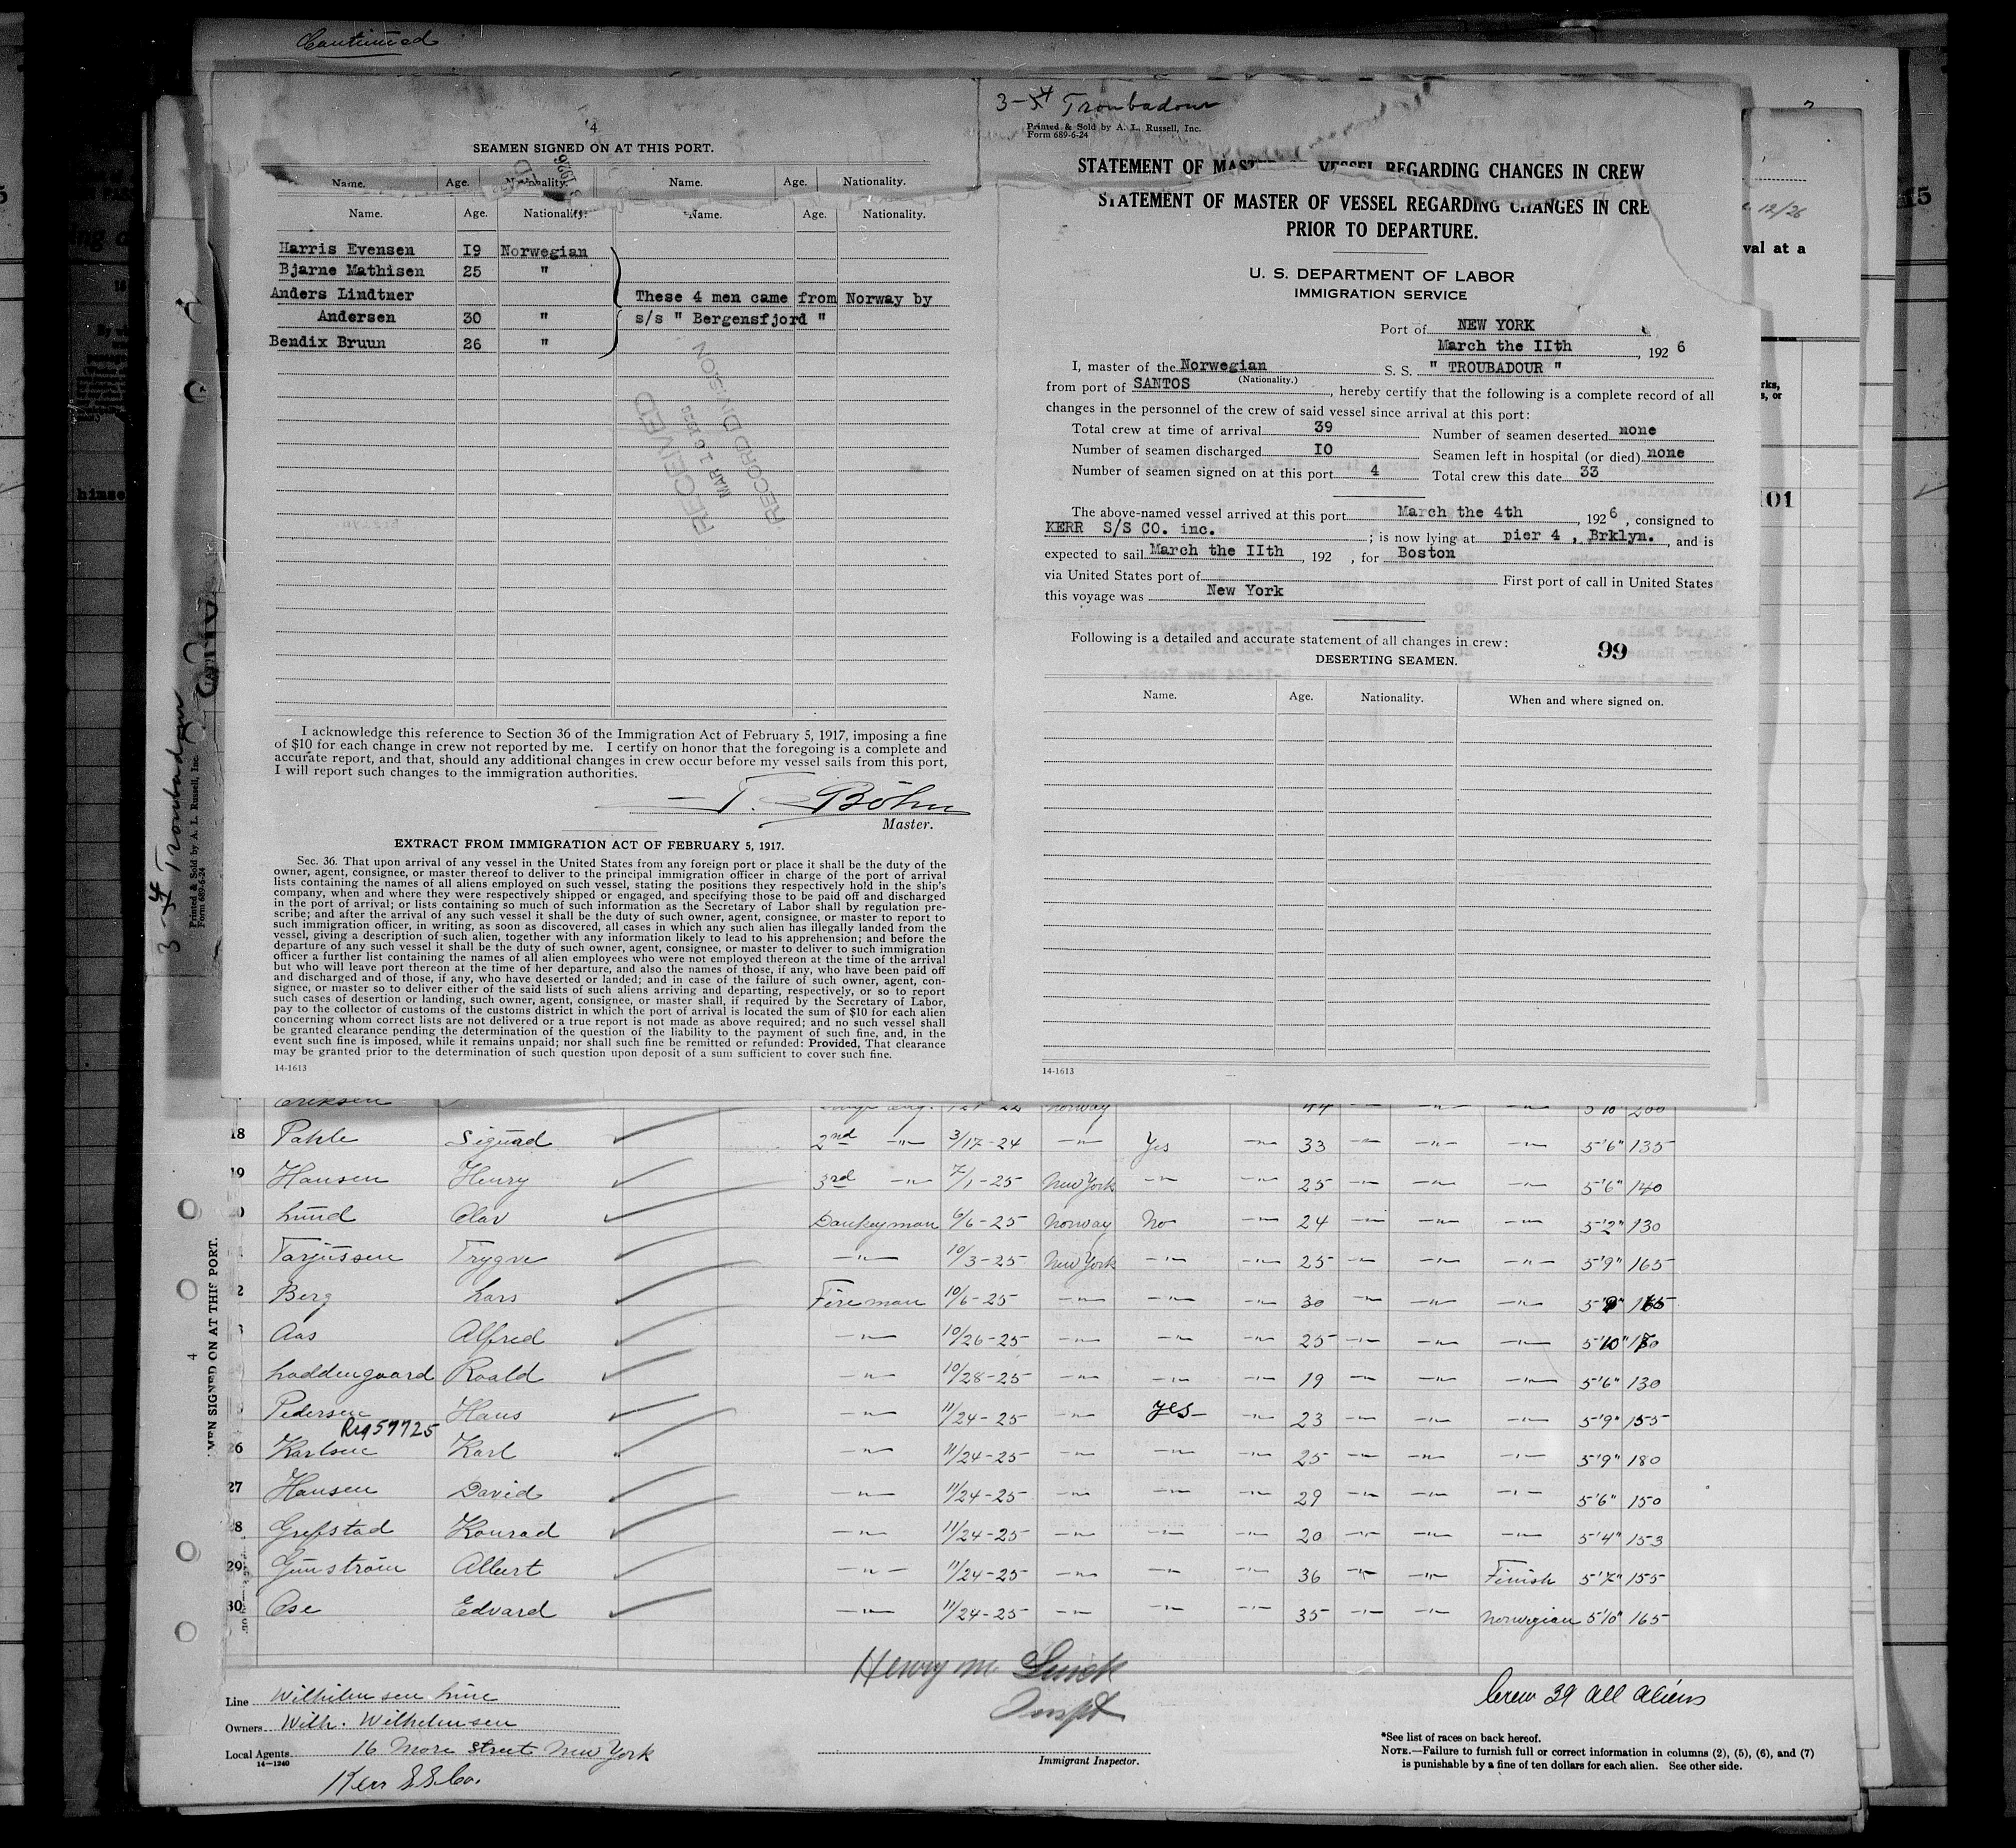 Continued
4
SEAMEN SIGNED ON AT THIS PORT.
Name. Age. Nationality. Name. Age. Nationality.
Name. Age. Nationality. Name. Age. Nationality.
Harris Evensen 19 Norwegian
Bjarne Mathisen 25 "
Anders Lindtner These 4 men came from Norway by
Andersen 30 " s/s " Bergensfjord "
Bendix Bruun 26 "
RECEIVED
MAR 1
RECORD DIVISION
I acknowledge this reference to Section 36 of the Immigration Act of February 5, 1917, imposing a fine
of $10 for each change in crew not reported by me. I certify on honor that the foregoing is a complete and
accurate report, and that, should any additional changes in crew occur before my vessel sails from this port,
I will report such changes to the immigration authorities.
T. Böhn
Master.
EXTRACT FROM IMMIGRATION ACT OF FEBRUARY 5, 1917.
Sec. 36. That upon arrival of any vessel in the United States from any foreign port or place it shall be the duty of the
owner, agent, consignee, or master thereof to deliver to the principal immigration officer in charge of the port of arrival
lists containing the names of all aliens employed on such vessel, stating the positions they respectively hold in the ship's
company, when and where they were respectively shipped or engaged, and specifying those to be paid off and discharged
in the port of arrival; or lists containing so much of such information as the Secretary of Labor shall by regulation pre-
scribe; and after the arrival of any such vessel it shall be the duty of such owner, agent, consignee, or master to report to
such immigration officer, in writing, as soon as discovered, all cases in which any such alien has illegally landed from the
vessel, giving a description of such alien, together with any information likely to lead to his apprehension; and before the
departure of any such vessel it shall be the duty of such owner, agent, consignee, or master to deliver to such immigration
officer a further list containing the names of all alien employees who were not employed thereon at the time of the arrival
but who will leave port thereon at the time of her departure, and also the names of those, if any, who have been paid off
and discharged and of those, if any, who have deserted or landed; and in case of the failure of such owner, agent, con-
signee, or master so to deliver either of the said lists of such aliens arriving and departing, respectively, or so to report
such cases of desertion or landing, such owner, agent, consignee, or master shall, if required by the Secretary of Labor,
pay to the collector of customs of the customs district in which the port of arrival is located the sum of $10 for each alien
concerning whom correct lists are not delivered or a true report is not made as above required; and no such vessel shall
be granted clearance pending the determination of the question of the liability to the payment of such fine, and, in the
event such fine is imposed, while it remains unpaid; nor shall such fine be remitted or refunded: Provided, That clearance
may be granted prior to the determination of such question upon deposit of a sum sufficient to cover such fine.
14-1613
3-4 Troubadour
Printed & Sold by A. L. Russell, Inc.
Form 689-6-24
STATEMENT OF VESSEL REGARDING CHANGES IN CREW
STATEMENT OF MASTER OF VESSEL REGARDING CHANGES IN CRE
PRIOR TO DEPARTURE.
U. S. DEPARTMENT OF LABOR
IMMIGRATION SERVICE
Port of NEW YORK
March the IIth, 192 6
I, master of the Norwegian S. S. " TROUBADOUR "
(Nationality.)
from port of SANTOS, hereby certify that the following is a complete record of all
changes in the personnel of the crew of said vessel since arrival at this port:
Total crew at time of arrival 39 Number of seamen deserted none
Number of seamen discharged I0 Seamen left in hospital (or died) none
Number of seamen signed on at this port 4 Total crew this date 33
The above-named vessel arrived at this port March the 4th, 192 6, consigned to
KERR S/S CO. inc. ; is now lying at pier 4 , Brklyn., and is
expected to sail March the IIth, 192 , for Boston
via United States port of First port of call in United States
this voyage was New York
Following is a detailed and accurate statement of all changes in crew:
99
DESERTING SEAMEN.
Name. Age. Nationality. When and where signed on.
14-1613
12/26
val at a
15
101
himse
3-4 Troubadour
Printed & Sold by A. L. Russell, Inc.
Form 689-6-24
4
MEN SIGNED ON AT THIS PORT.
Eriksen Norway 44 —"— —"— 5'10" 200
18 Pahle Sigurd 2nd —"— 3/17-24 —"— Yes —"— 33 —"— —"— —"— 5'6" 135
19 Hansen Henry 3rd —"— 7/1-25 New York —"— —"— 25 —"— —"— —"— 5'6" 140
0 Lund Olav Dankeyman 6/6-25 Norway No —"— 24 —"— —"— —"— 5'2" 130
1 Tarjussen Trygve —"— 10/3-25 New York —"— —"— 25 —"— —"— —"— 5'9" 165
2 Berg Lars Fireman 10/6-25 —"— —"— —"— 30 —"— —"— —"— 5'9" 165
3 Aas Alfred —"— 10/26-25 —"— —"— —"— 25 —"— —"— —"— 5'10" 170
Loddengaard Roald —"— 10/28-25 —"— —"— —"— 19 —"— —"— —"— 5'6" 130
Pedersen Hans —"— 11/24-25 —"— yes —"— 23 —"— —"— —"— 5'9" 155
Reg 57725
26 Karlsen Karl —"— 11/24-25 —"— —"— —"— 25 —"— —"— —"— 5'9" 180
27 Hansen David —"— 11/24-25 —"— —"— —"— 29 —"— —"— —"— 5'6" 150
28 Grefstad Konrad —"— 11/24-25 —"— —"— —"— 20 —"— —"— —"— 5'4" 153
29 Gunstrom Albert —"— 11/24-25 —"— —"— —"— 36 —"— —"— Finish 5'7" 155
30 Ose Edvard —"— 11/24-25 —"— —"— —"— 35 —"— —"— Norwegian 5'10" 165
Henry M.
Inspt
Crew 39 all aliens
Line Wilhilmsen Line
Owners Wilh. Wilhelmsen
Local Agents 16 More Street New York
14—1240
Kerr S.S. Co.
Immigrant Inspector.
*See list of races on back hereof.
NOTE.—Failure to furnish full or correct information in columns (2), (5), (6), and (7)
is punishable by a fine of ten dollars for each alien. See other side.